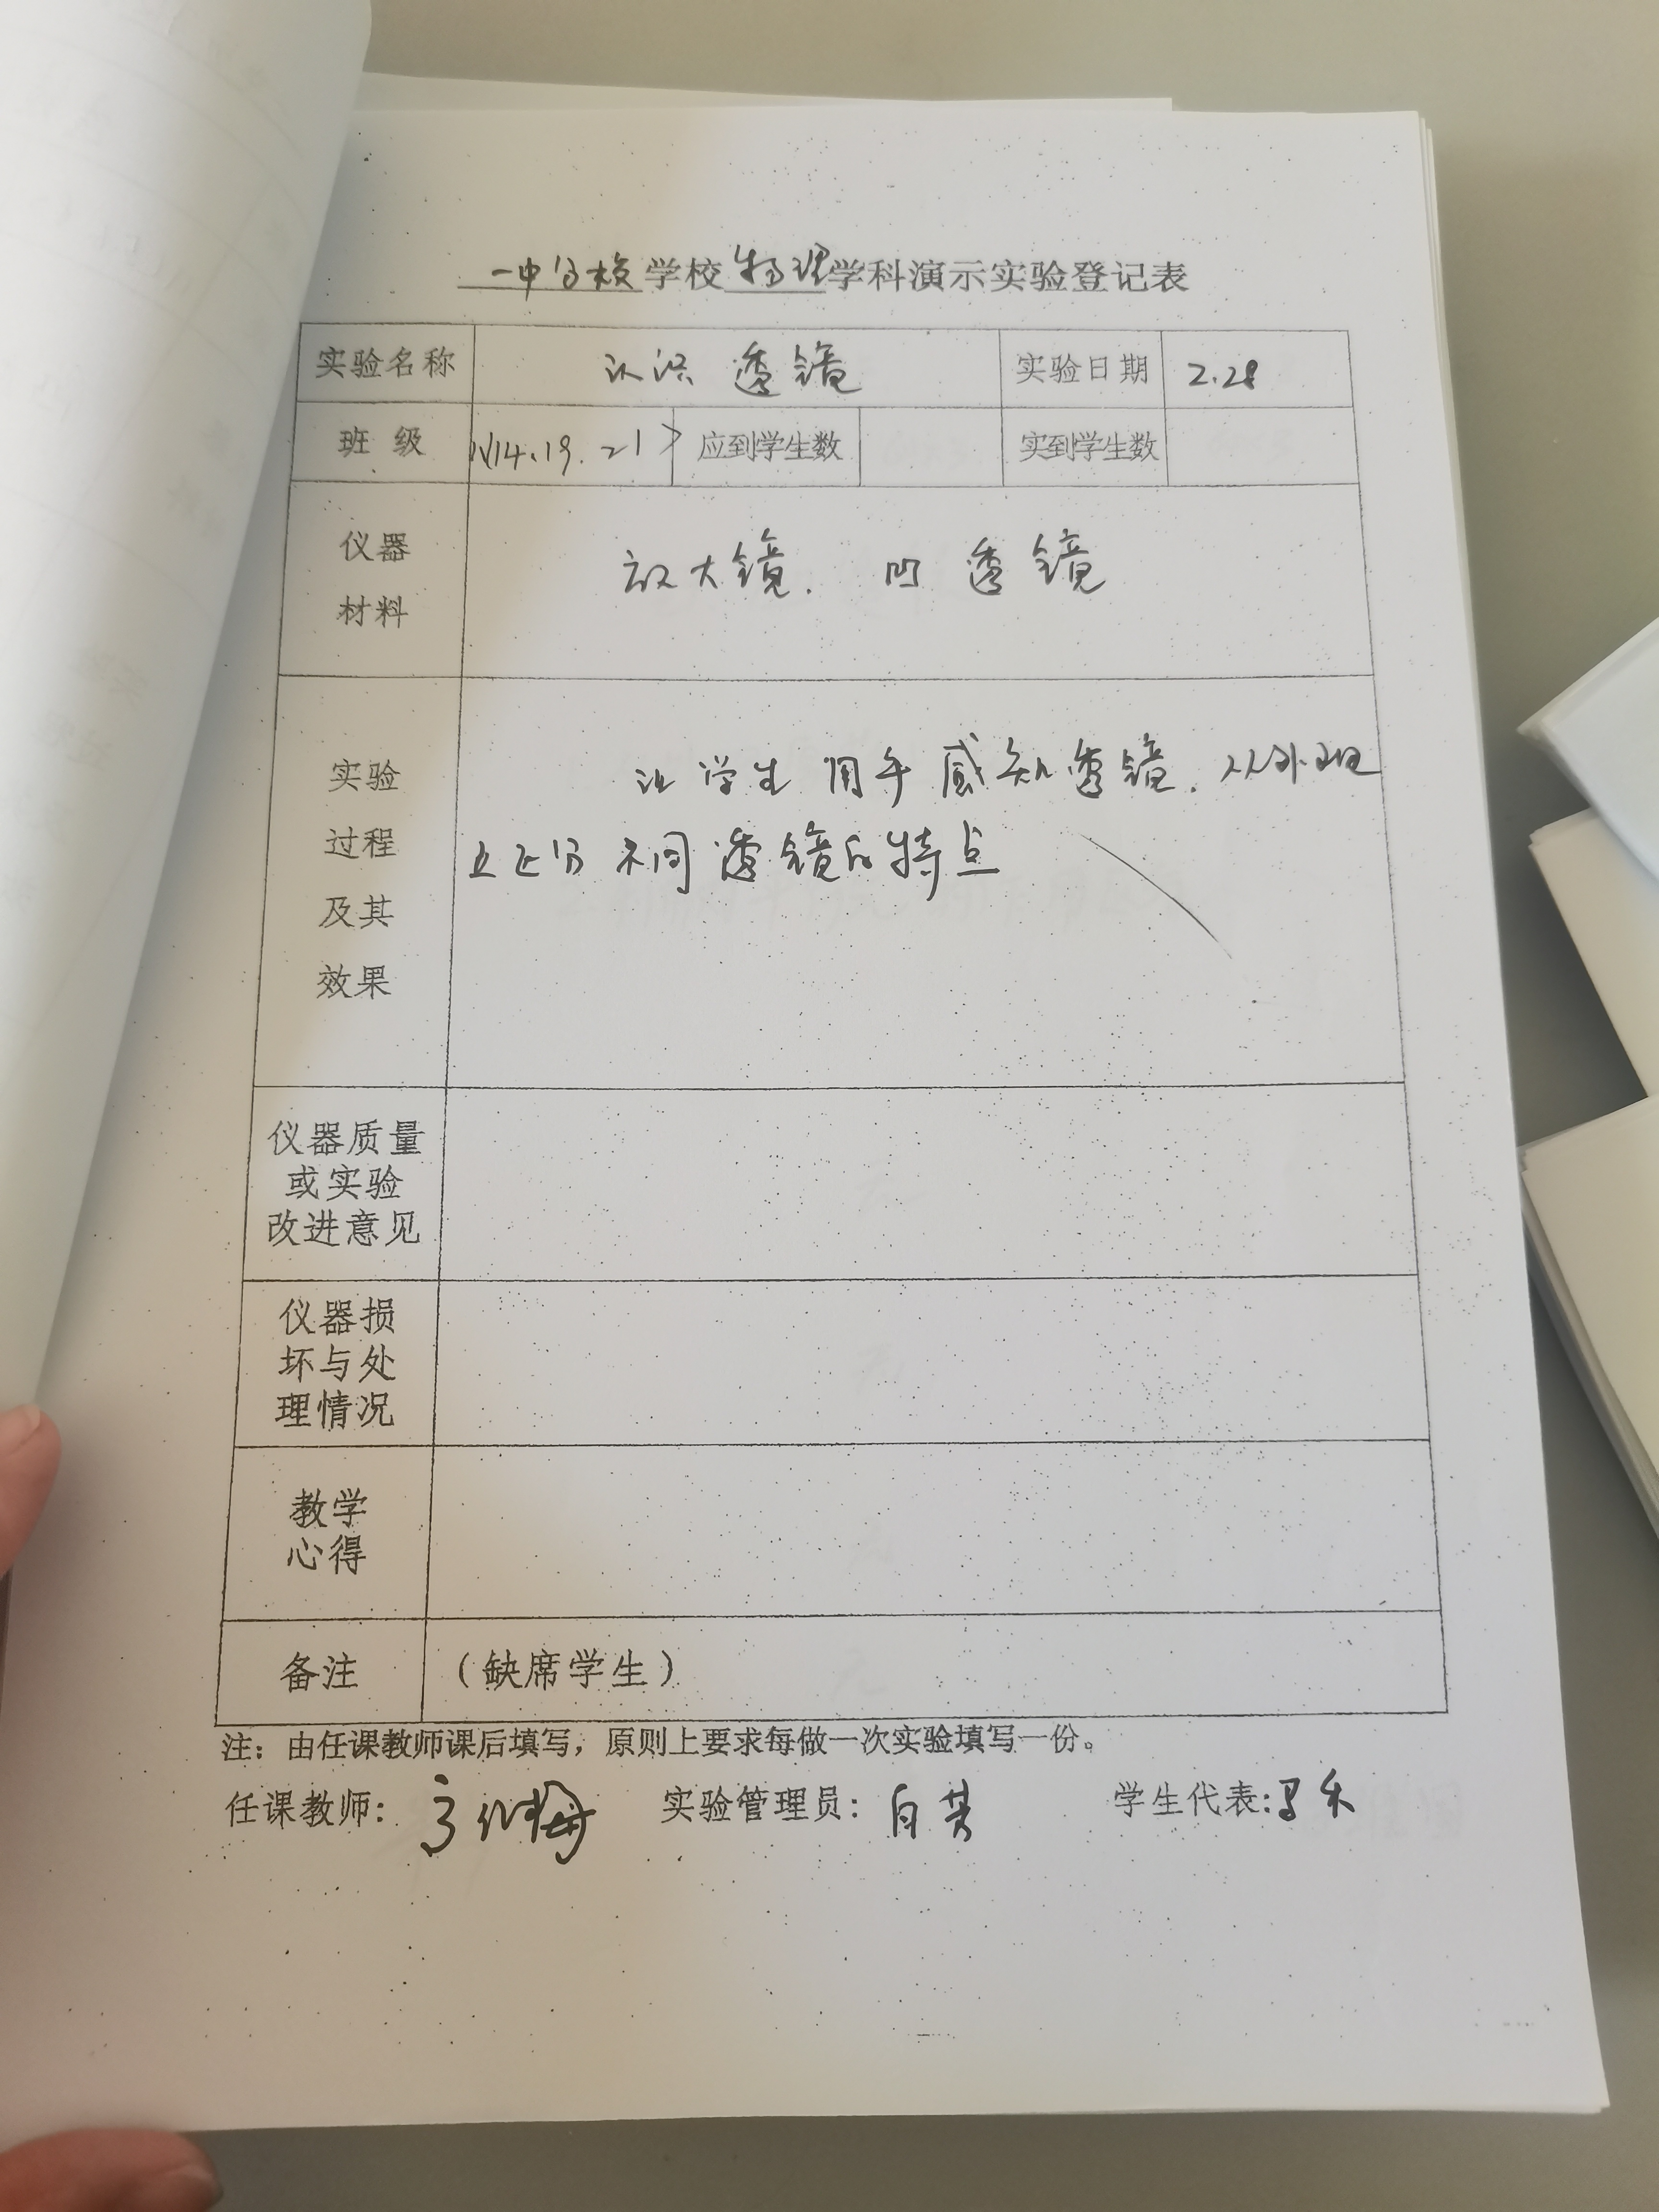 一中分校学校物理学科演示实验登记表
实验名称 认识透镜 实验日期 2.28
班级 14、19、21> 应到学生数 实到学生数
仪器
材料
放大镜. 凹透镜
实验
过程
及其
效果
让学生用手感知透镜.从外观
上区分不同透镜的特点
仪器质量
或实验
改进意见
仪器损
坏与处
理情况
教学
心得
备注 (缺席学生)
注：由任课教师课后填写，原则上要求每做一次实验填写一份。
任课教师： 实验管理员：白芳 学生代表：